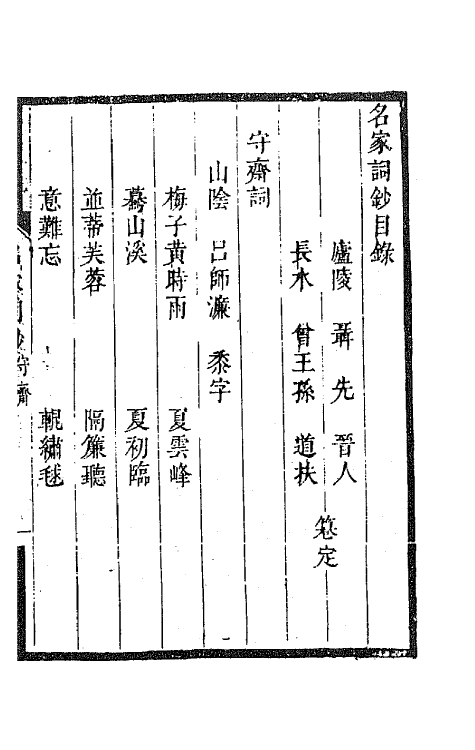 名家詞鈔目錄
廬陵 聶先 晉人
長水 曾王孫 道扶
篹定
守齋詞
山陰 呂師濂 黍字
梅子黃時雨 夏雲峰
驀山溪 夏初臨
並蒂芙蓉 隔簾聽
意難忘 輥繡毬
守齋